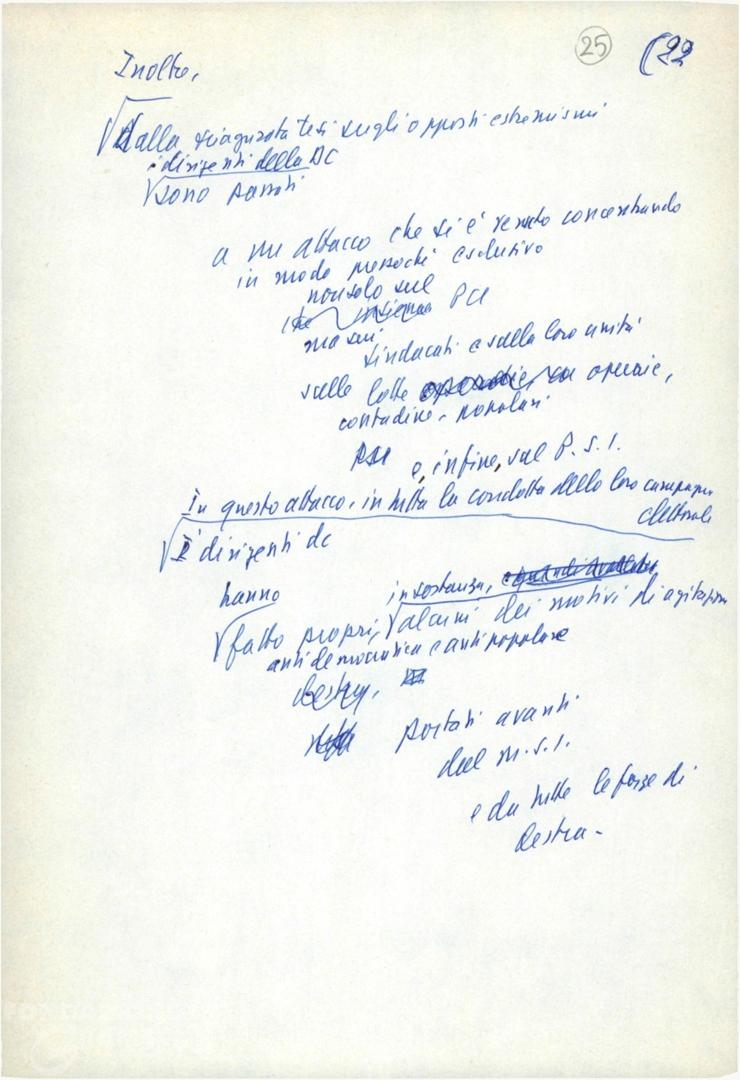 25 (22
Inoltre,
dalla sciagurata tesi sugli opposti estremismi
i dirigenti della DC
sono passati
a un attacco che si è venuto concentrando
in modo pressoché esclusivo
non solo sul
PCI
ma sui
sindacati e sulla loro unità
sulle lotte operaie,
contadine, popolari
e, infine, sul P.S.I.
In questo attacco, in tutta la condotta della loro campagna
elettorale
I dirigenti dc
hanno in sostanza,
fatto propri, alcuni dei motivi di agitazione
antidemocratica e antipopolare
portati avanti
dal M.S.I.
e da tutte le forze di
destra -